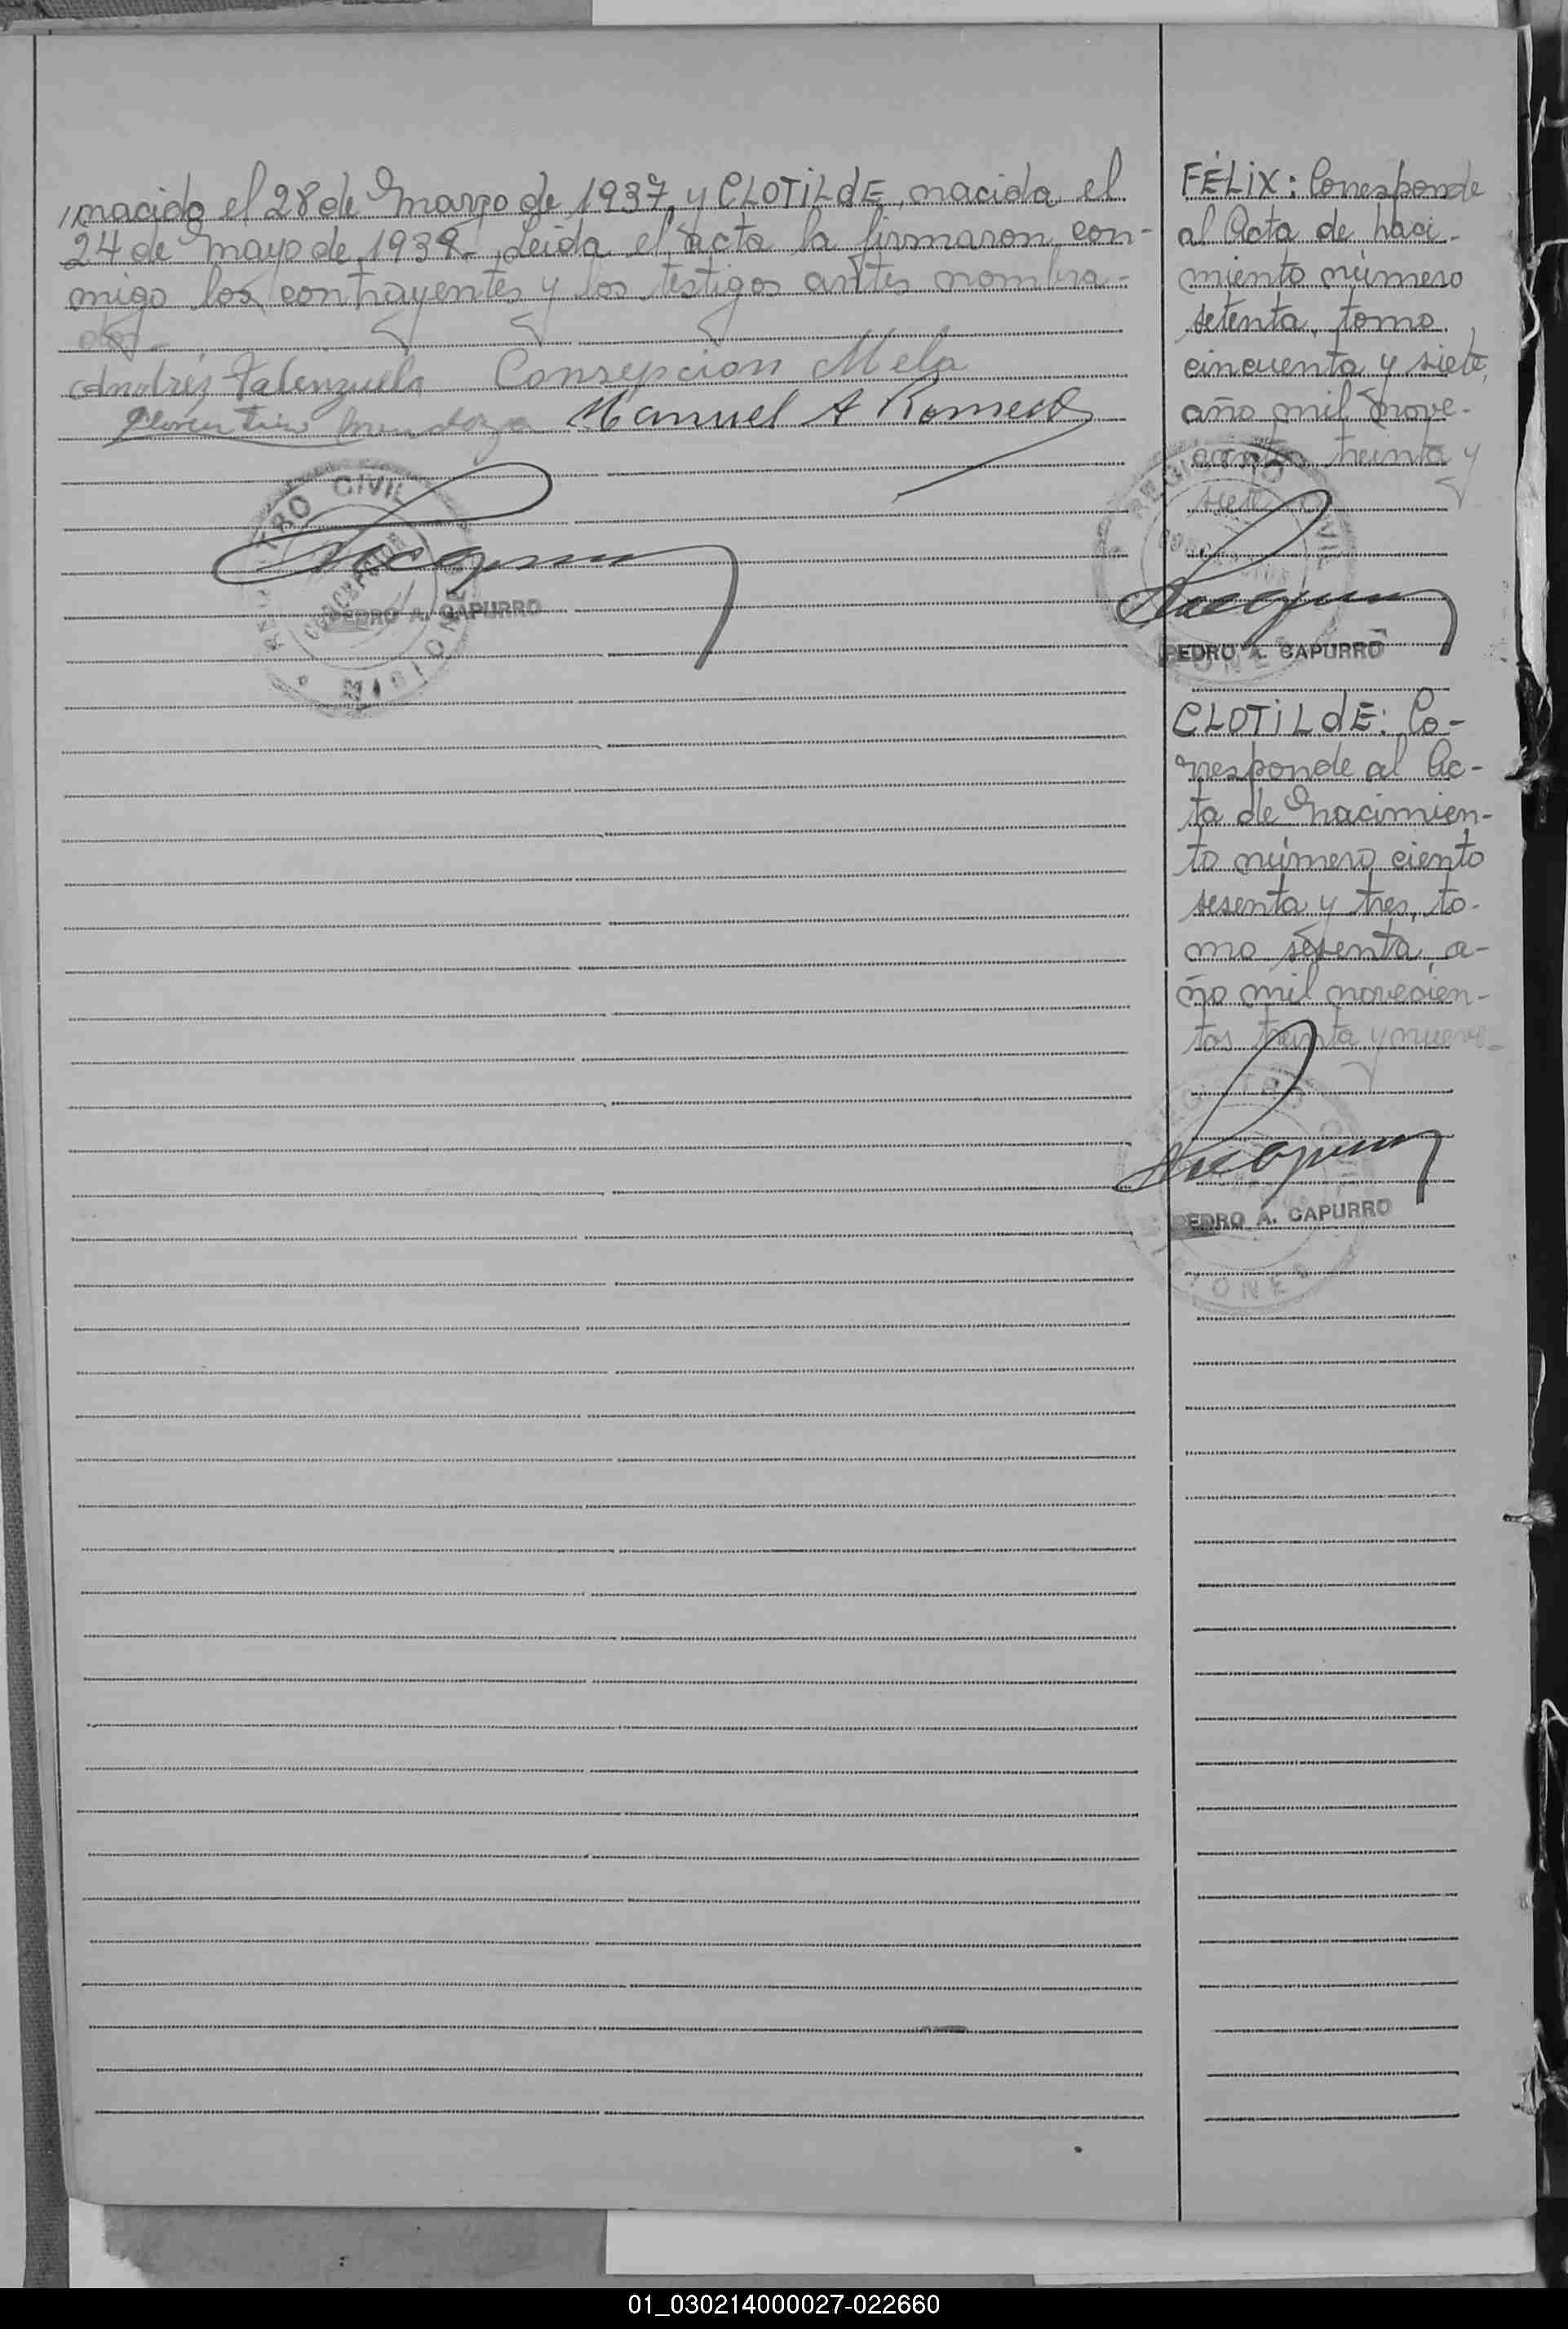 nacido el 28 de Marzo de 1937, y CLOTILdE, nacida el
24 de Mayo de 1939.- Leida el acta la firmaron con-
migo los contrayentes y los testigos antes nombra-
dos.-
Andrés Valenzuela Consepcion Mela
Florentino Mendoza Manuel A Romero
REGISTRO CIVIL
MISIONES
PEDRO A. CAPURRO
FÉLiX: Corresponde
al Acta de Naci-
miento número
setenta, tomo
cincuenta y siete,
año mil nove-
cientos treinta y
siete
REGISTRO CIVIL
PEDRO A. CAPURRO
CLOTiLdE: Co-
rresponde al Ac-
ta de Nacimien-
to número ciento
sesenta y tres, to-
mo sesenta, a-
ño mil novecien-
tos treinta y nueve.-
PEDRO A. CAPURRO
01_030214000027-022660